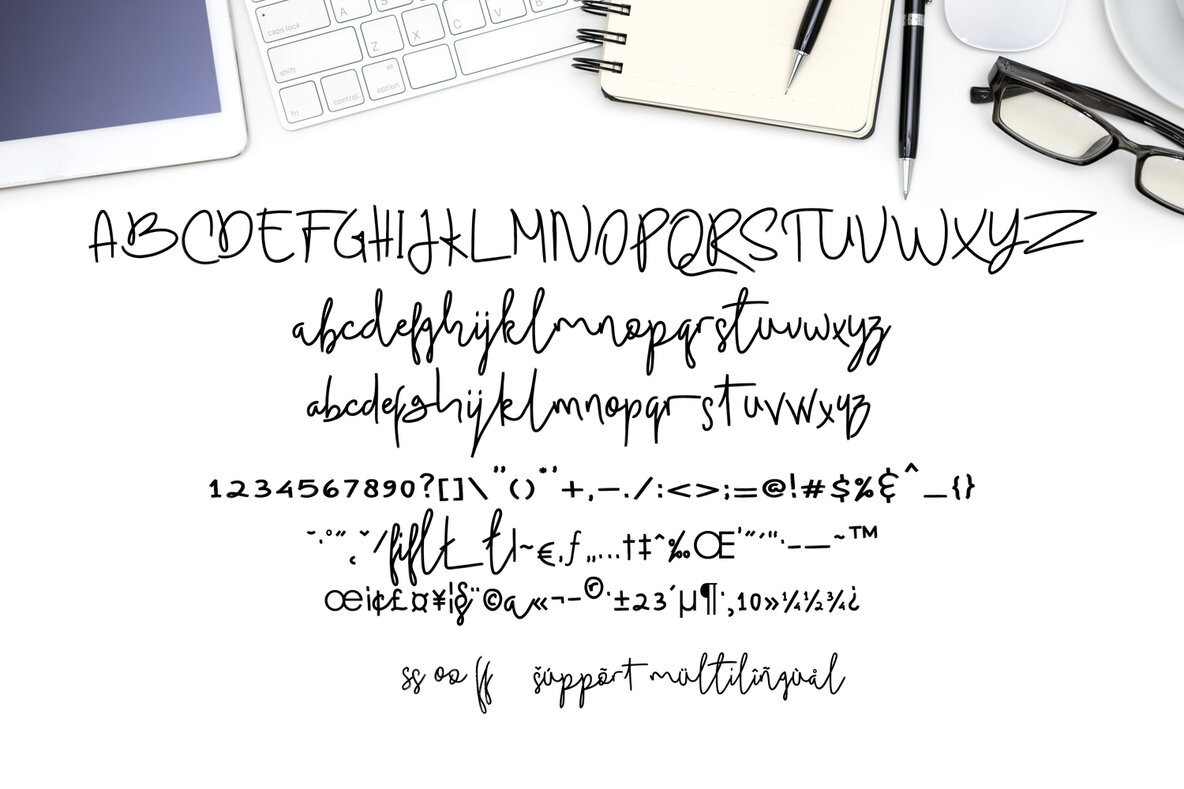 A S Z X C V B
caps lock
shift
fn control alt option
ABCDEFGHIJKLMNOPQRSTUVWXYZ
abcdefghijklmnopqrstuvwxyz
abcdefghijklmnopqrstuvwxyz
1234567890?[]\"()*'+,-./:<>;=@!#$%&^_{}
fifl ~€‚ƒ„…†‡ˆ‰Œ ˜™
œ¡¢£¤¥¦§¨©a«¬-®·±23´µ¶·¸10»¼½¾¿
ss oo ff šúppõrt mültilîñgùål